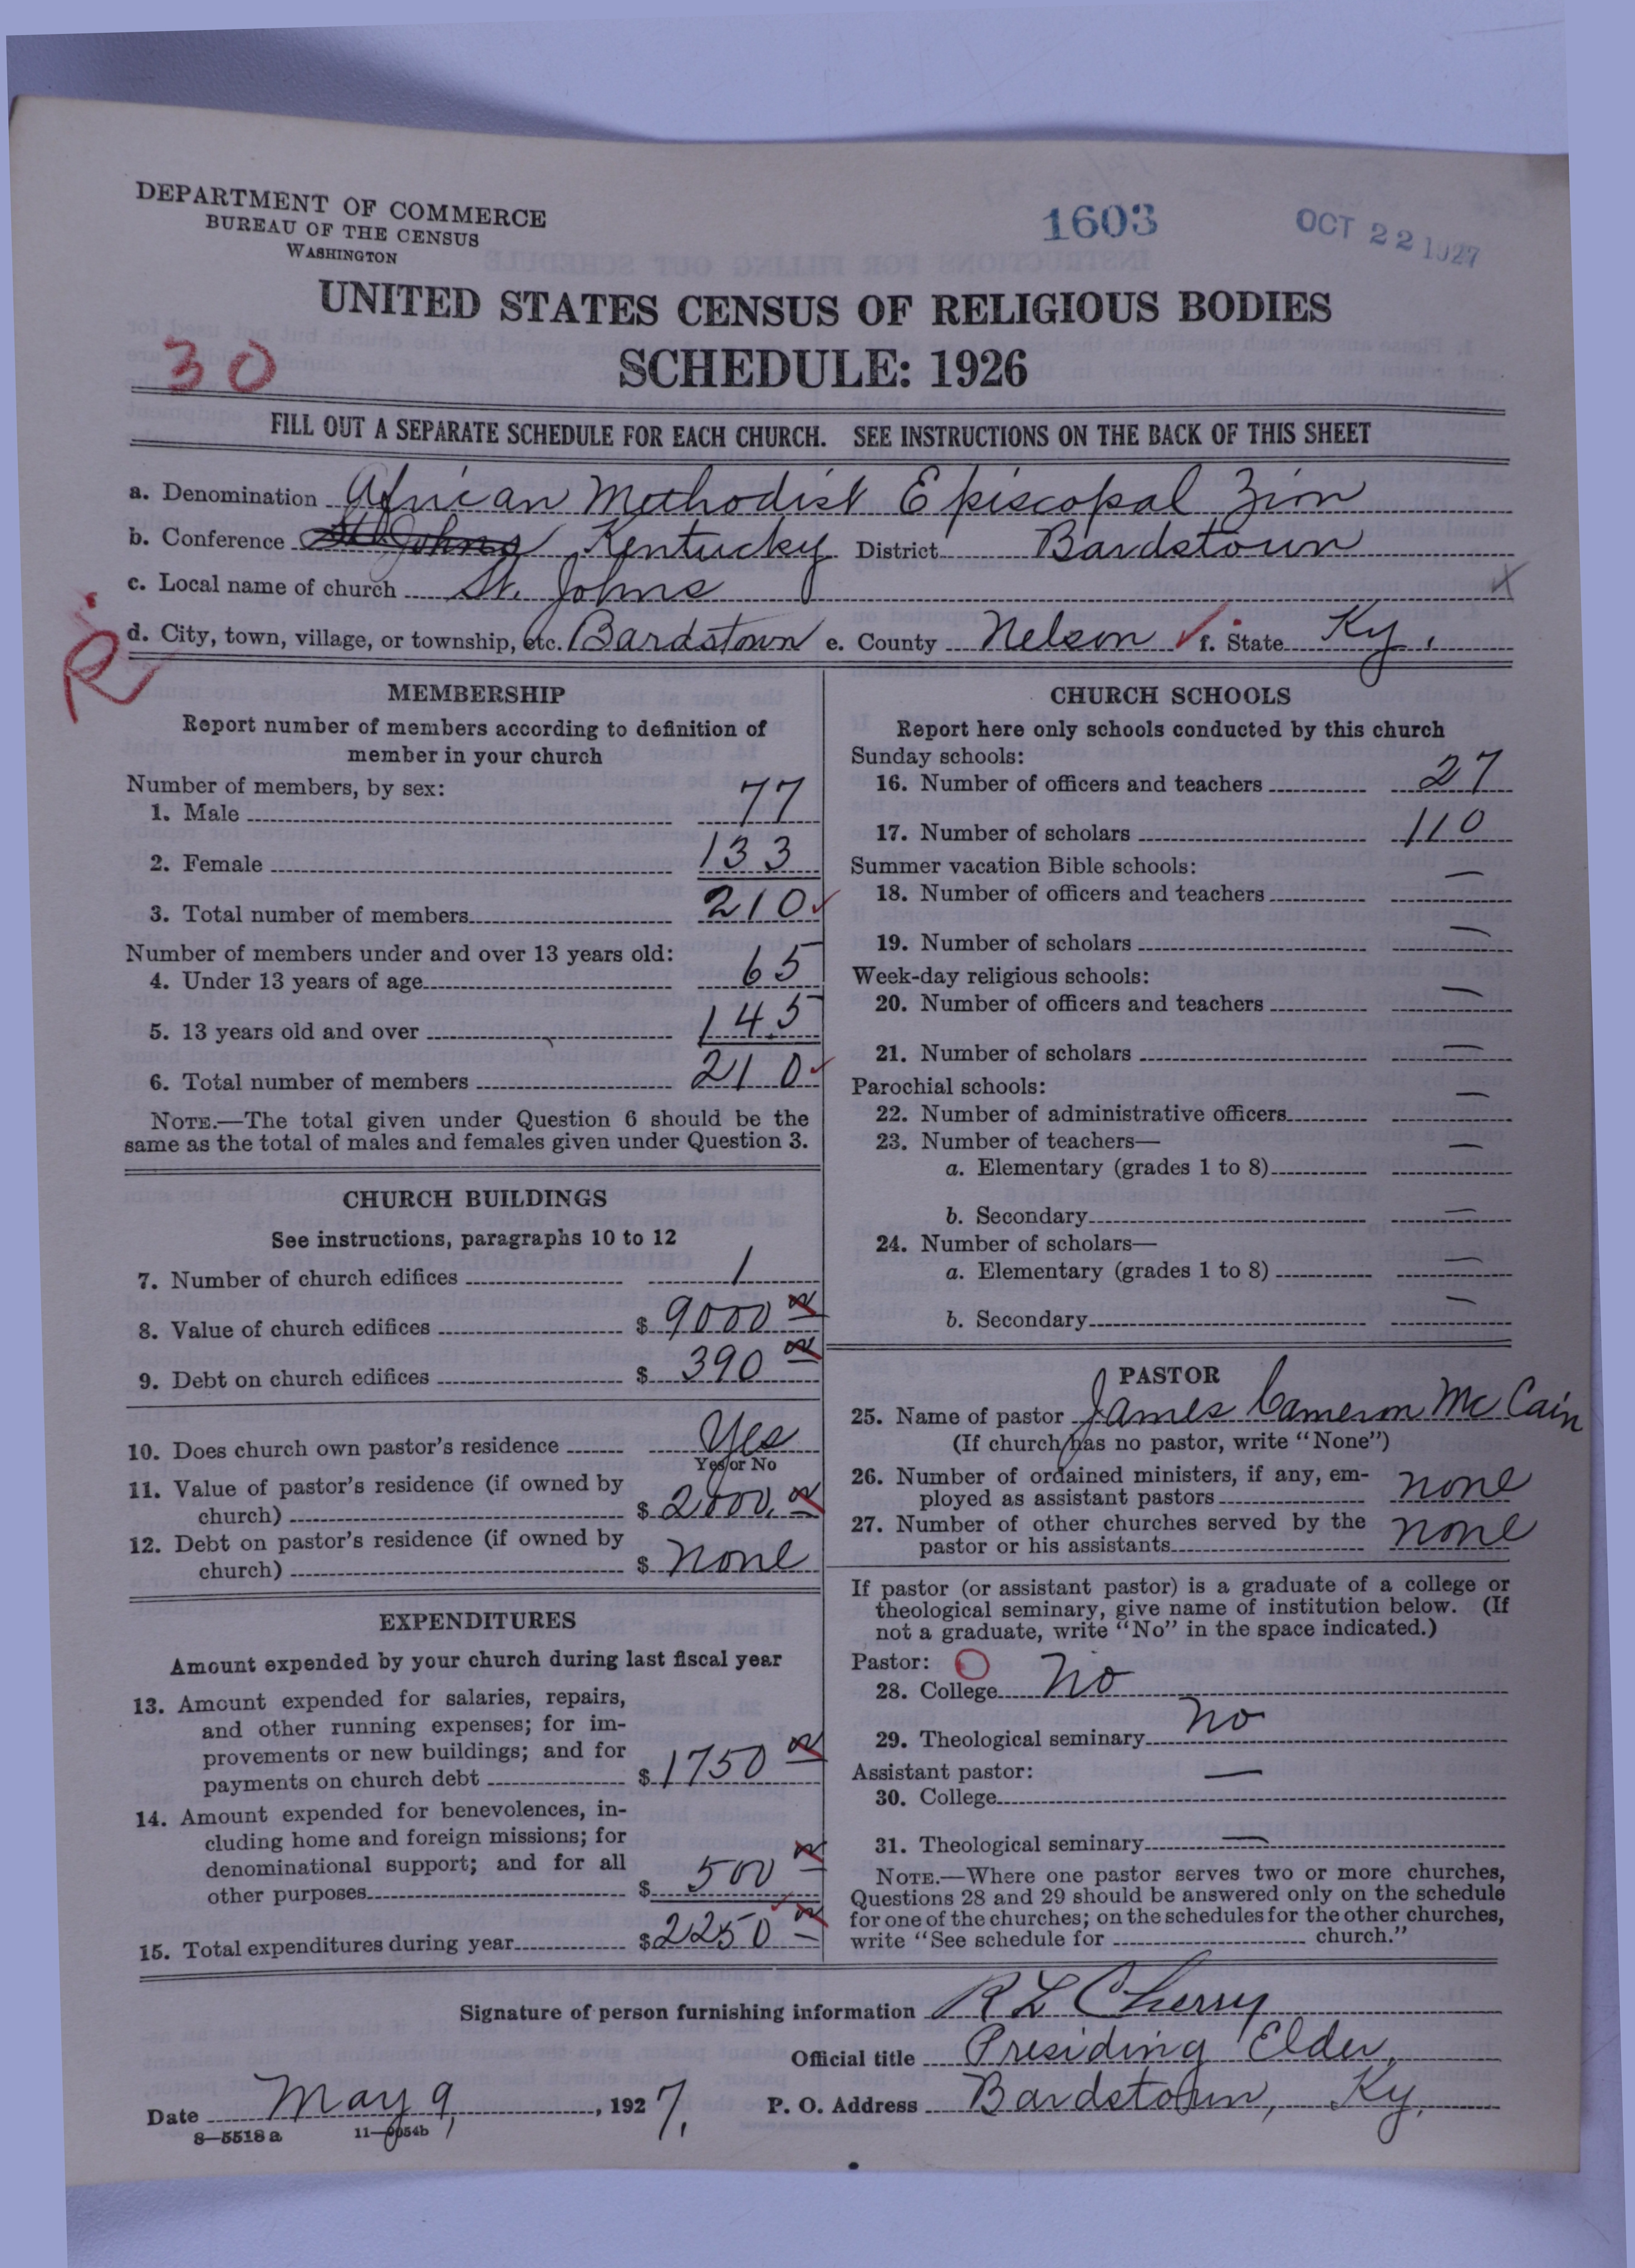 DEPARTMENT OF COMMERCE
BUREAU OF THE CENSUS
WASHINGTON
1603
OCT 22 1927
UNITED STATES CENSUS OF RELIGIOUS BODIES
30
SCHEDULE: 1926
FILL OUT A SEPARATE SCHEDULE FOR EACH CHURCH. SEE INSTRUCTIONS ON THE BACK OF THIS SHEET
a. Denomination African Methodist Episcopal Zion
b. Conference St Johns Kentucky District Bardstown
c. Local name of church St. Johns
d. City, town, village, or township, etc. Bardstown e. County Nelson f. State Ky.
R
MEMBERSHIP
Report number of members according to definition of
member in your church
Number of members, by sex:
1. Male 77
2. Female 133
3. Total number of members 210
Number of members under and over 13 years old:
4. Under 13 years of age 65
5. 13 years old and over 145
6. Total number of members 210
NOTE.—The total given under Question 6 should be the
same as the total of males and females given under Question 3.
CHURCH BUILDINGS
See instructions, paragraphs 10 to 12
7. Number of church edifices 1
8. Value of church edifices $ 9000
9. Debt on church edifices $ 390
10. Does church own pastor's residence Yes
Yes or No
11. Value of pastor's residence (if owned by
church) $ 2000
12. Debt on pastor's residence (if owned by
church) $ none
EXPENDITURES
Amount expended by your church during last fiscal year
13. Amount expended for salaries, repairs,
and other running expenses; for im-
provements or new buildings; and for
payments on church debt $ 1750
14. Amount expended for benevolences, in-
cluding home and foreign missions; for
denominational support; and for all
other purposes $ 500
15. Total expenditures during year $ 2250
CHURCH SCHOOLS
Report here only schools conducted by this church
Sunday schools:
16. Number of officers and teachers 27
17. Number of scholars 110
Summer vacation Bible schools:
18. Number of officers and teachers —
19. Number of scholars —
Week-day religious schools:
20. Number of officers and teachers —
21. Number of scholars —
Parochial schools:
22. Number of administrative officers —
23. Number of teachers—
a. Elementary (grades 1 to 8) —
b. Secondary —
24. Number of scholars—
a. Elementary (grades 1 to 8) —
b. Secondary —
PASTOR
25. Name of pastor James Cameron McCain
(If church has no pastor, write "None")
26. Number of ordained ministers, if any, em-
ployed as assistant pastors none
27. Number of other churches served by the
pastor or his assistants none
If pastor (or assistant pastor) is a graduate of a college or
theological seminary, give name of institution below. (If
not a graduate, write "No" in the space indicated.)
Pastor:
28. College No
29. Theological seminary No
Assistant pastor:
30. College —
31. Theological seminary —
NOTE.—Where one pastor serves two or more churches,
Questions 28 and 29 should be answered only on the schedule
for one of the churches; on the schedules for the other churches,
write "See schedule for church."
Signature of person furnishing information R L Cherry
Official title Presiding Elder
Date May 9, 1927. P. O. Address Bardstown, Ky.
8—5518a 11—9054b